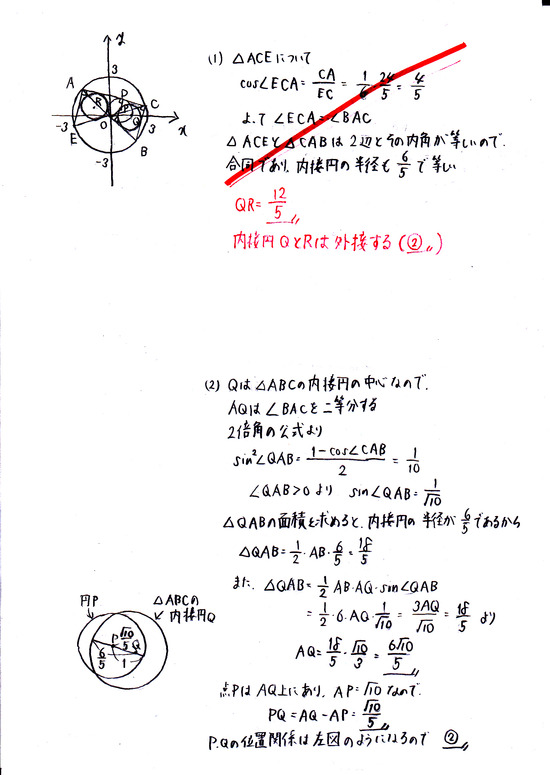 y
3
A
D
R
P
C
Q
-3
O
3
x
E
B
-3
(1) △ACEについて
cos∠ECA=CA/EC=1/6・24/5=4/5
よって ∠ECA=∠BAC
△ACEと△CABは2辺とその内角が等しいので、
合同であり、内接円の半径も 6/5 で等しい
QR=12/5〃
内接円QとRは外接する(②〃)
(2) Qは△ABCの内接円の中心なので、
AQは∠BACを二等分する
2倍角の公式より
sin²∠QAB=(1-cos∠CAB)/2=1/10
∠QAB>0より sin∠QAB=1/√10
△QABの面積を求めると、内接円の半径が6/5であるから
△QAB=1/2・AB・6/5=18/5
また、△QAB=1/2 AB・AQ・sin∠QAB
=1/2・6・AQ・1/√10=3AQ/√10=18/5 より
AQ=18/5・√10/3=6√10/5〃
点PはAQ上にあり、AP=√10なので、
PQ=AQ-AP=√10/5〃
P,Qの位置関係は左図のようになるので ②〃
円P
△ABCの
内接円Q
P
√10/5
Q
6/5
1